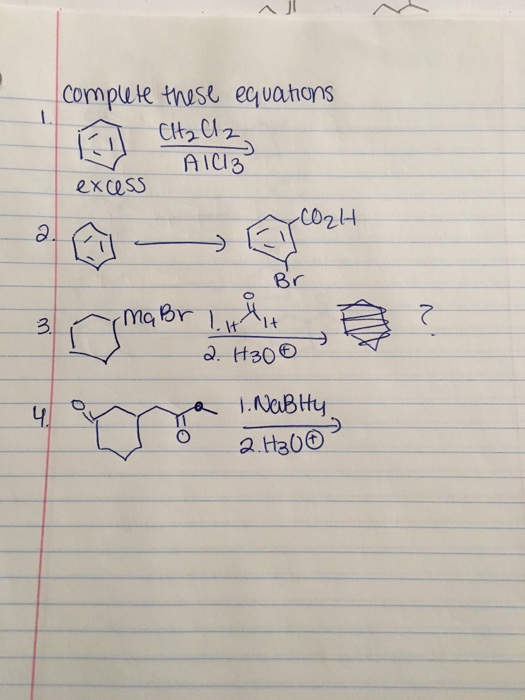 complete these equations
1. CH2Cl2
AlCl3
excess
2. CO2H
Br
3. MgBr 1. H O H ?
2. H3O⊕
4. O O O 1. NaBH4
2. H3O⊕